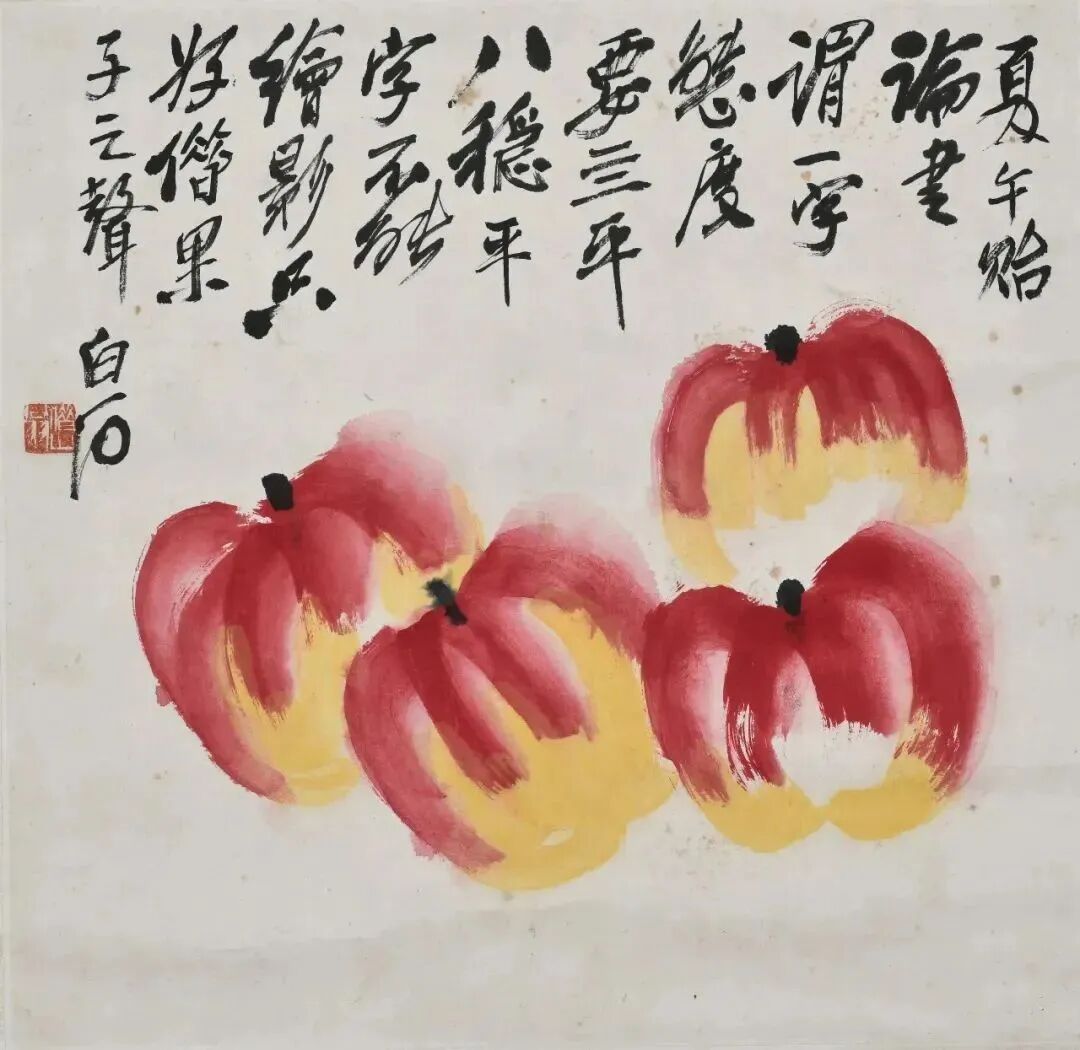 夏午貽
論書
謂一字
態度
要三平
八穩平
字不能
繪影只
好借果
子之聲
白石